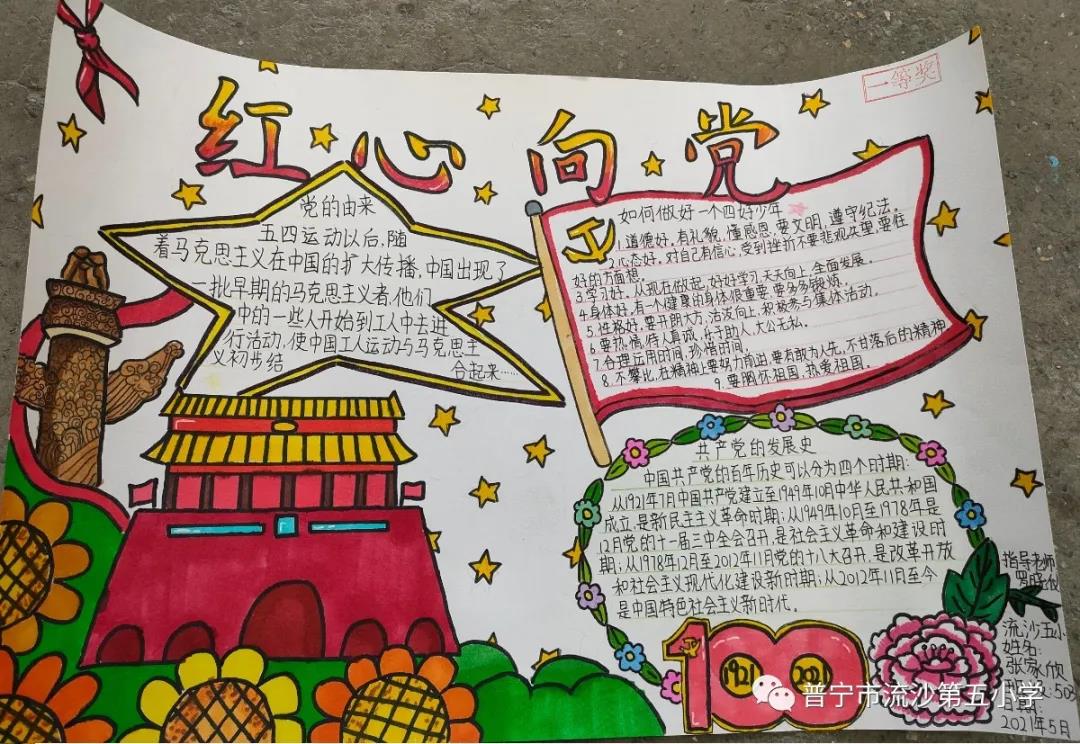 一等奖
红心向党
党的由来
五四运动以后,随
着马克思主义在中国的扩大传播,中国出现了
一批早期的马克思主义者,他们
中的一些人开始到工人中去进
行活动,使中国工人运动与马克思主
义初步结合起来……
如何做好一个四好少年
1.道德好,有礼貌,懂感恩,要文明,遵守纪法。
2.心态好,对自己有信心,受到挫折不要悲观失望,要往
好的方面想。
3.学习好,从现在做起,好好学习,天天向上,全面发展。
4.身体好,有一个健康的身体很重要,要多多锻炼。
5.性格好,要开朗大方,活泼向上,积极参与集体活动。
6.要热情,待人真诚,乐于助人,大公无私。
7.合理运用时间,珍惜时间。
8.不攀比,在精神上要努力前进,要有敢为人先,不甘落后的精神
9.要胸怀祖国,热爱祖国。
共产党的发展史
中国共产党的百年历史可以分为四个时期:
从1921年7月中国共产党建立至1949年10月中华人民共和国
成立,是新民主主义革命时期;从1949年10月至1978年
12月党的十一届三中全会召开,是社会主义革命和建设时
期;从1978年12月至2012年11月党的十八大召开,是改革开放
和社会主义现代化建设新时期;从2012年11月至今
是中国特色社会主义新时代。
100
1921
2021
指导老师
流沙五小
姓名:
张家欣
班级:503
日期:
2021年5月
普宁市流沙第五小学